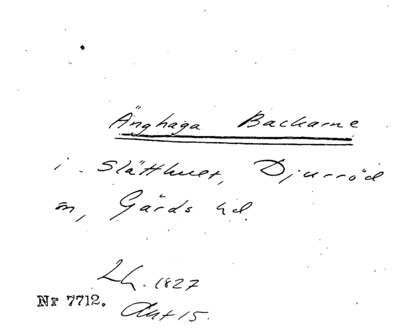 Änghaga Backarne
i Slätthult, Djurröd
sn, Gärds hd.
Lh. 1827
Nr 7712.
Akt 15.